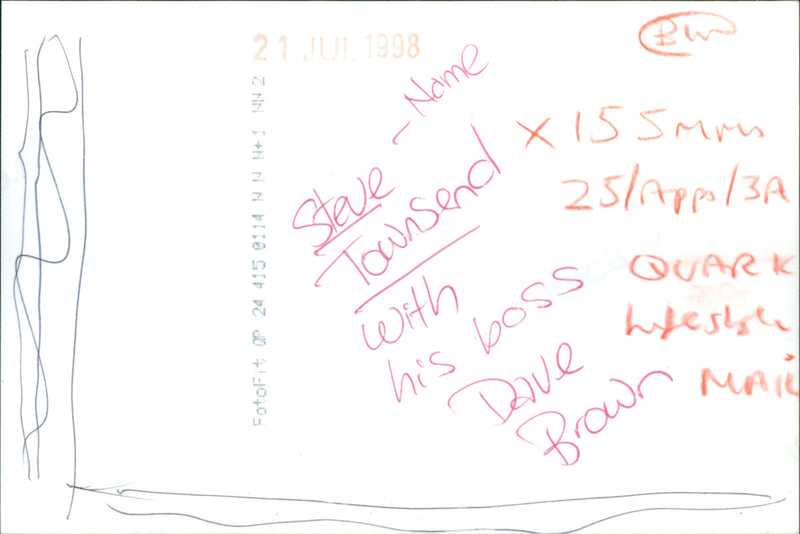 21 JUL 1998
BW
Steve - Name
Townsend
with
his boss
Dave
Brown
X 155mms
25/App/3A
QUARK
Lifestyle
MAIL
FotoFit QP 24 415 0114 N N N+1 NN 2